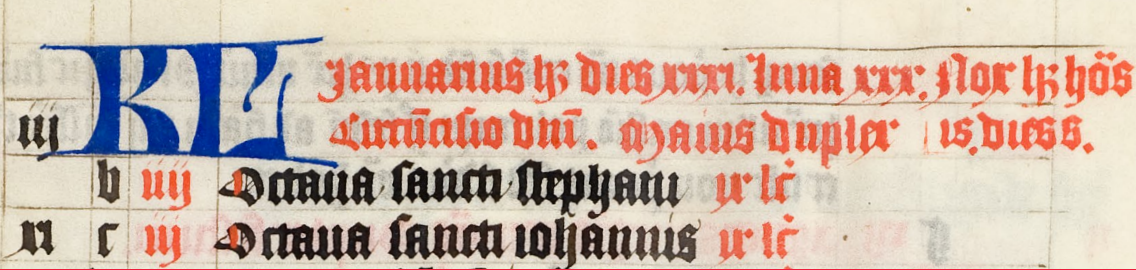 KL Januarius hꝫ dies xxxi. luna xxx. Nox hꝫ hōs
iij Circūcisio dnī. Maius duplex is. dies 8.
b iiij Octaua sancti stephani ix lc̄
xi c iij Octaua sancti iohannis ix lc̄